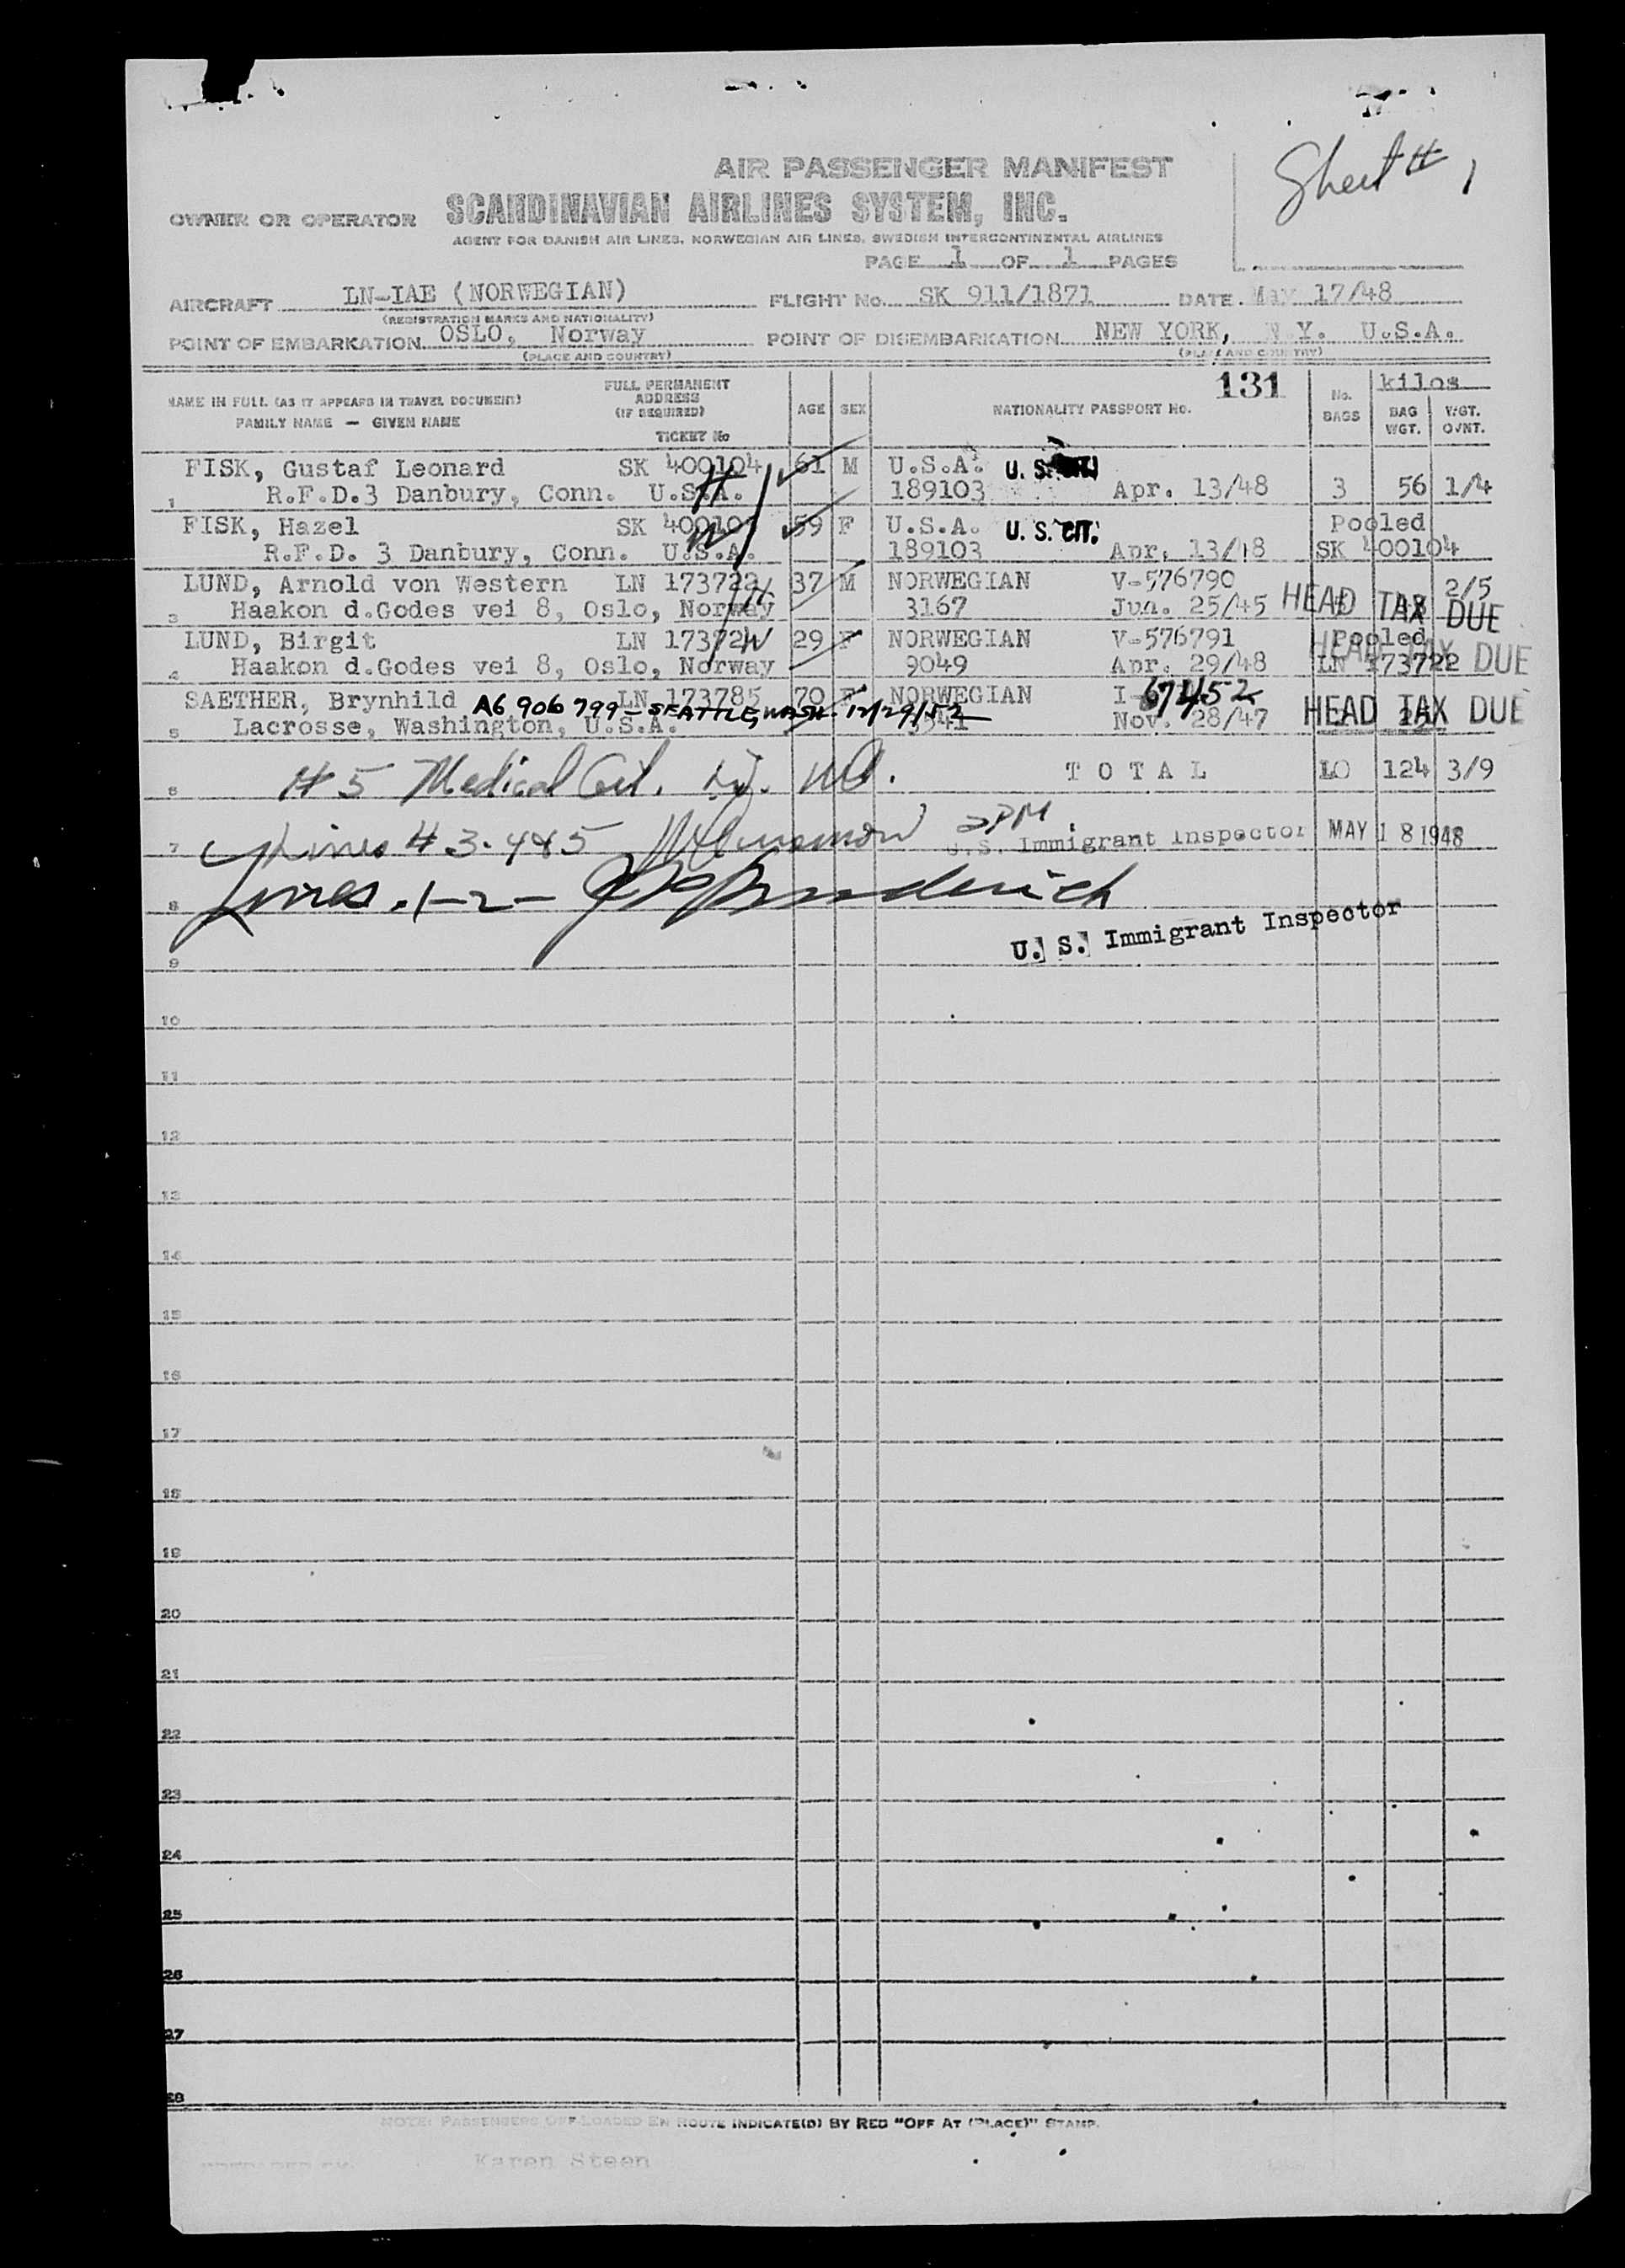 Sheet # 1
AIR PASSENGER MANIFEST
OWNER OR OPERATOR SCANDINAVIAN AIRLINES SYSTEM, INC.
AGENT FOR DANISH AIR LINES, NORWEGIAN AIR LINES, SWEDISH INTERCONTINENTAL AIRLINES
PAGE 1 OF 1 PAGES
AIRCRAFT LN-IAE (NORWEGIAN) FLIGHT No. SK 911/1871 DATE May 17/48
(REGISTRATION MARKS AND NATIONALITY)
POINT OF EMBARKATION OSLO, Norway POINT OF DISEMBARKATION NEW YORK, N.Y. U.S.A.
(PLACE AND COUNTRY) (PLACE AND COUNTRY)
NAME IN FULL (AS IT APPEARS IN TRAVEL DOCUMENT) FULL PERMANENT ADDRESS (IF REQUIRED) AGE SEX NATIONALITY PASSPORT No. 131 No. BAGS kilos
FAMILY NAME — GIVEN NAME TICKET No BAG WGT. WGT. O/NT.
FISK, Gustaf Leonard SK 400104 61 M U.S.A. U. S.
1 R.F.D.3 Danbury, Conn. U.S.A. 189103 Apr. 13/48 3 56 1/4
FISK, Hazel SK 59 F U.S.A. U. S. CIT. Pooled
R.F.D. 3 Danbury, Conn. U.S.A. 189103 Apr. 13/48 SK 400104
LUND, Arnold von Western LN 173722 37 M NORWEGIAN V-576790 2/5
3 Haakon d.Godes vei 8, Oslo, Norway 3167 Jun. 25/45 HEAD TAX DUE
LUND, Birgit LN 29 F NORWEGIAN V-576791 Pooled
4 Haakon d.Godes vei 8, Oslo, Norway 9049 Apr. 29/48 LN 173722 HEAD TAX DUE
SAETHER, Brynhild LN 173785 70 F NORWEGIAN I-67452
A6 906 799 - SEATTLE, WASH. 12/29/52
5 Lacrosse, Washington, U.S.A. Nov. 28/47 HEAD TAX DUE
6 # 5 Medical Cert. TOTAL LO 124 3/9
7 Lines # 3-4&5 2PM U.S. Immigrant Inspector MAY 18 1948
8 Lines 1-2-
U. S. Immigrant Inspector
9
10
11
12
13
14
15
16
17
18
19
20
21
22
23
24
25
26
27
28
NOTE: PASSENGERS OFF-LOADED EN ROUTE INDICATE(D) BY RED "OFF AT (PLACE)" STAMP.
PREPARED BY Karen Steen